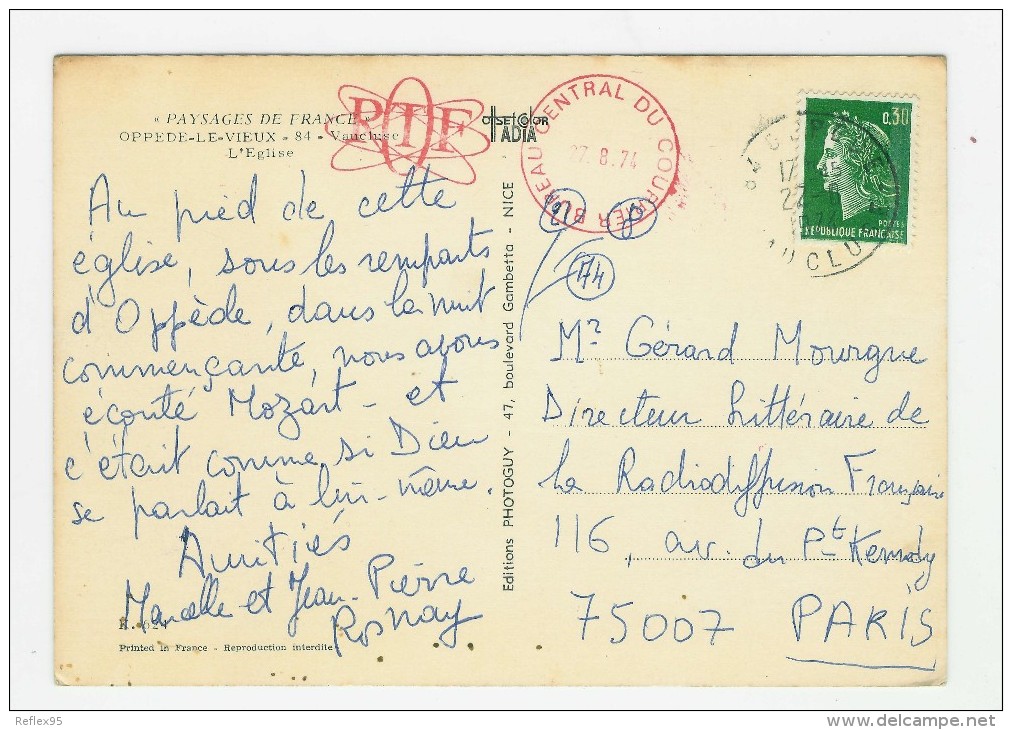 « PAYSAGES DE FRANCE »
OPPEDE-LE-VIEUX - 84 - Vaucluse
L'Eglise
RTF
OFFSET COLOR
IADIA
BUREAU CENTRAL DU COURRIER
27.8.74
0,30
POSTES
REPUBLIQUE FRANÇAISE
Au pied de cette
église, sous les remparts
d'Oppède, dans la nuit
commençante, nous avons
écouté Mozart - et
c'était comme si Dieu
se parlait à lui-même.
Amitiés
Marcelle et Jean-Pierre
Rosnay
Printed in France - Reproduction interdite
Editions PHOTOGUY - 47, boulevard Gambetta - NICE
74
Mr Gérard Mourgue
Directeur Littéraire de
La Radiodiffusion Française
116, av. du Pt Kennedy
75007 PARIS
Reflex95
delcampe.net